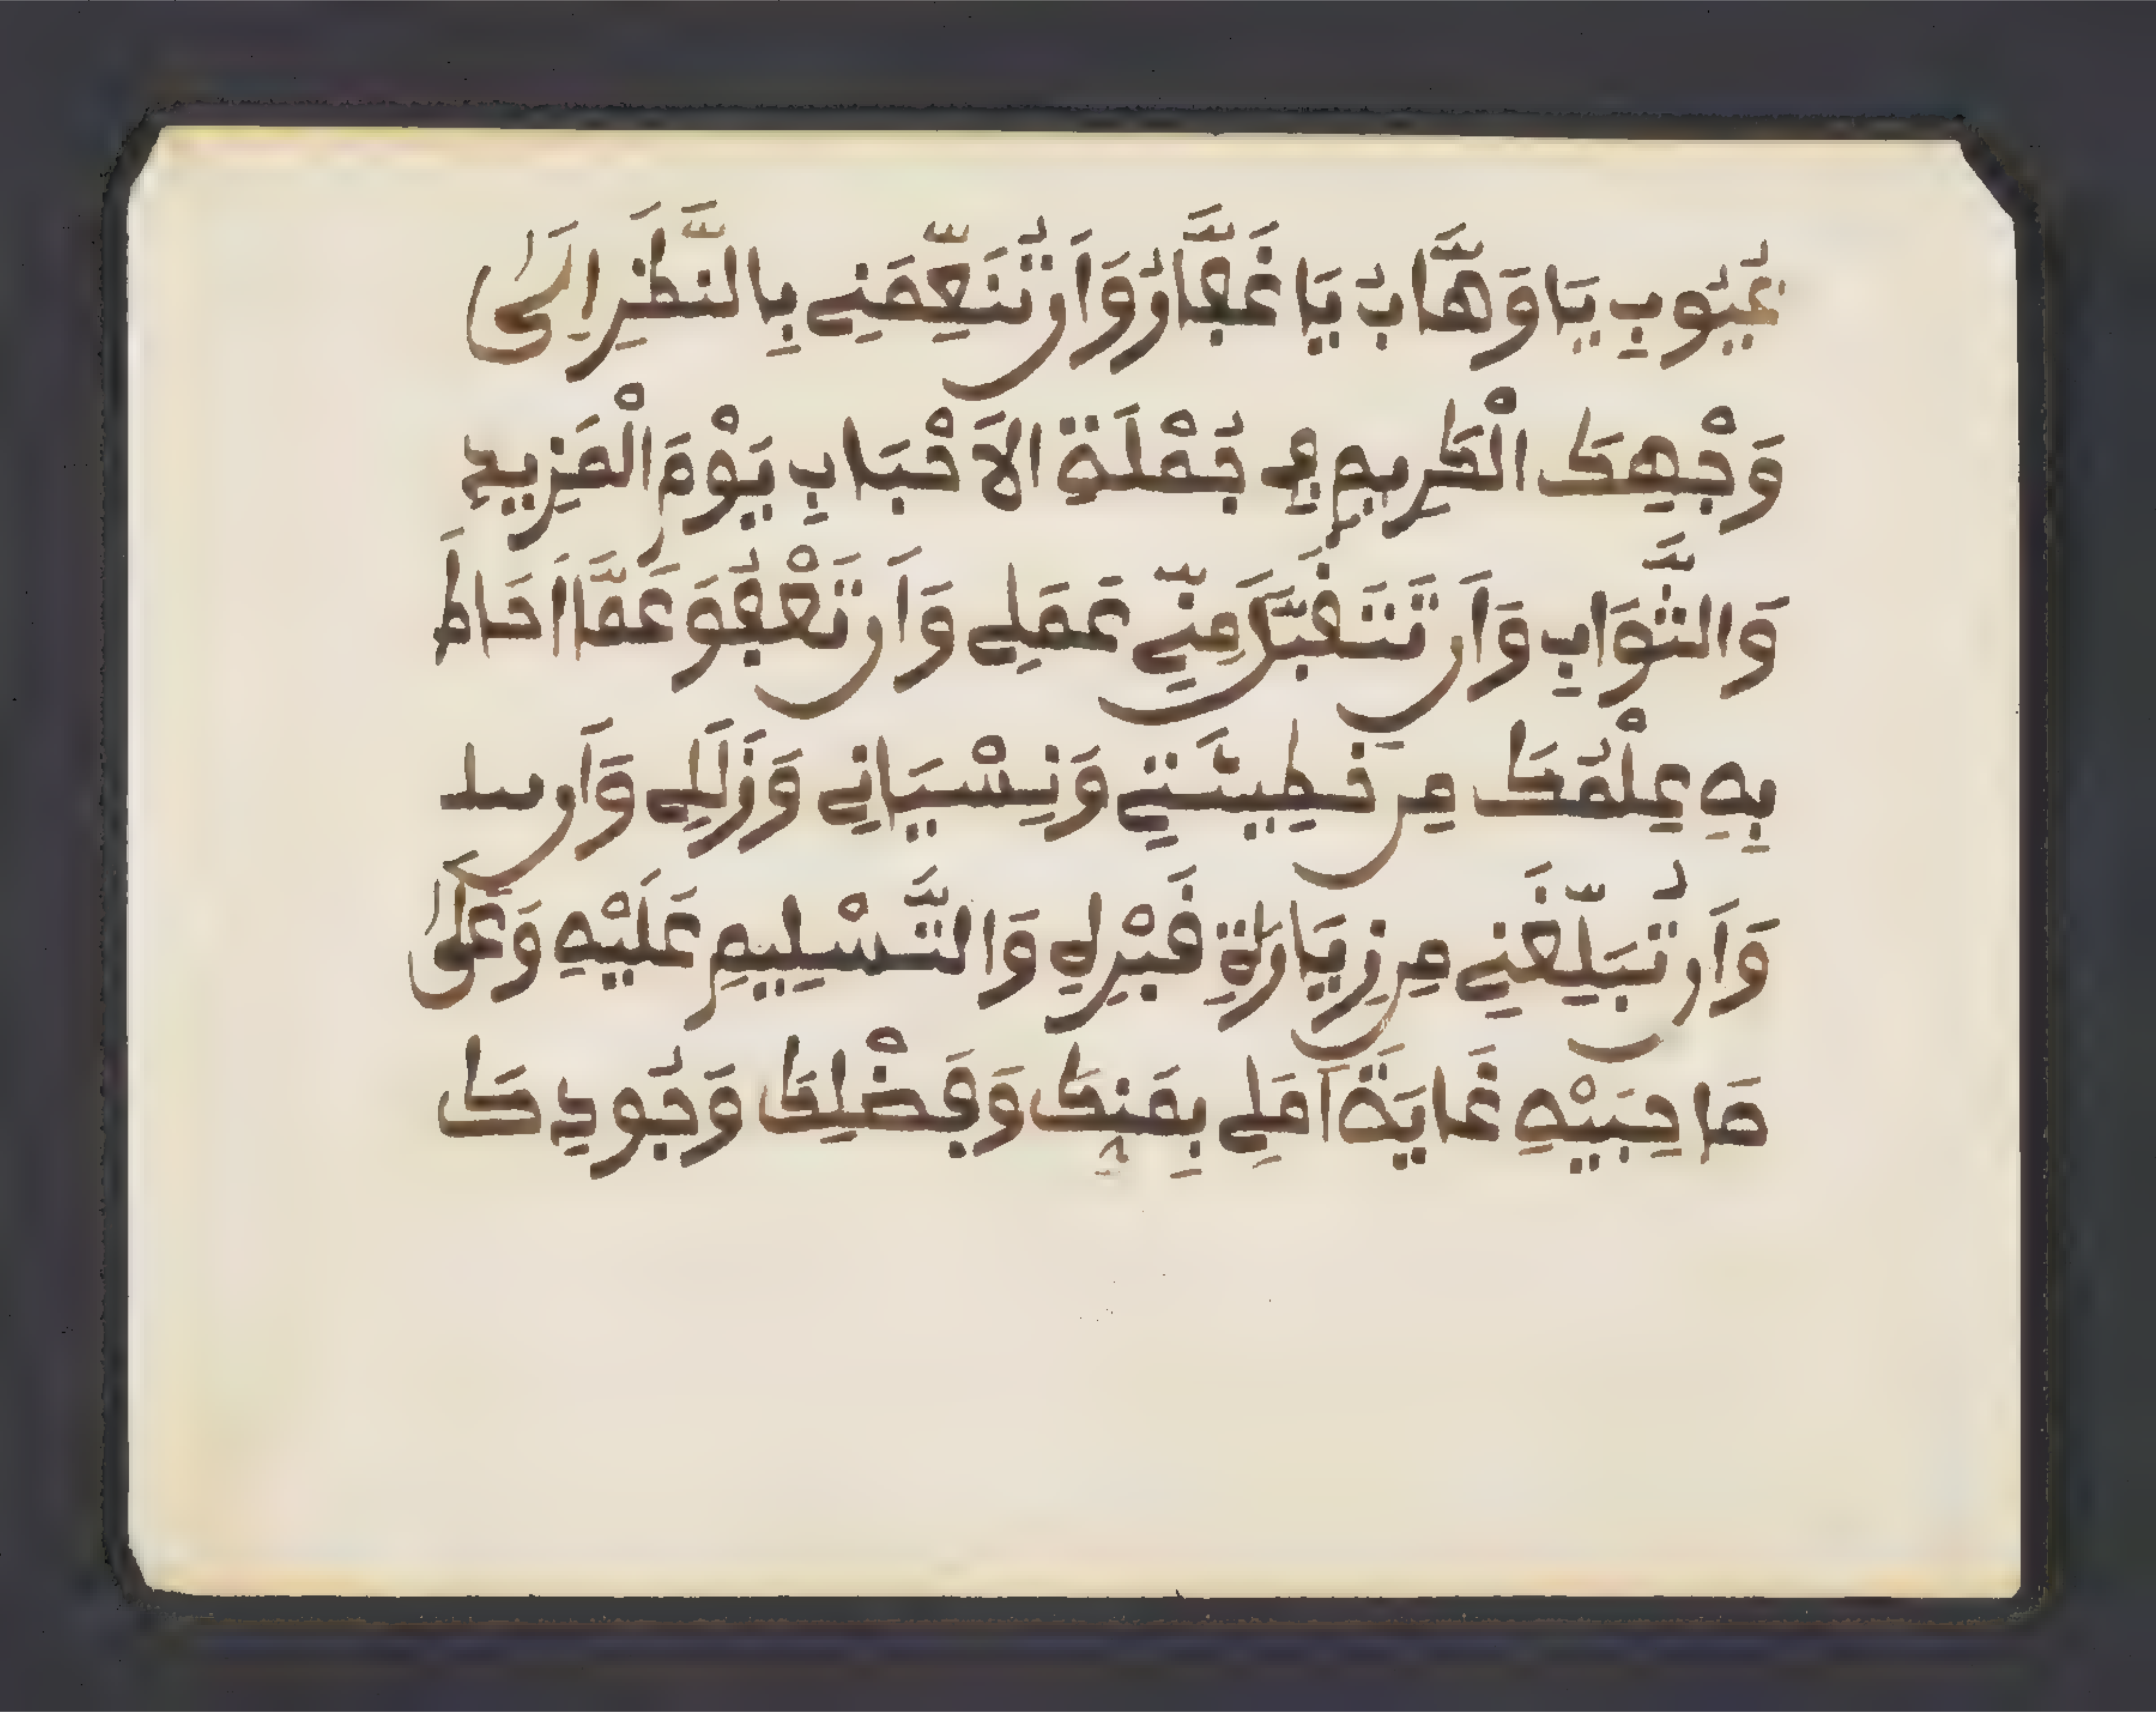 عُيُوبِ يَا وَهَّابُ يَا غَفَّارُ وَأَن تُنَعِّمَنِي بِالنَّظَرِ إِلَىٰ
وَجْهِكَ الْكَرِيمِ فِي جُمْلَةِ الاَحْبَابِ يَوْمَ الْمَزِيدِ
وَالثَّوَابِ وَأَن تَتَقَبَّلَ مِنِّي عَمَلِي وَأَن تَعْفُوَ عَمَّا أَحَاطَ
بِهِ عِلْمُكَ مِن خَطِيئَتِي وَنِسْيَانِي وَزَلَلِي وَأَن
وَأَن تُبَلِّغَنِي مِن زِيَارَةِ قَبْرِهِ وَالتَّسْلِيمِ عَلَيْهِ وَعَلَىٰ
صَاحِبَيْهِ غَايَةَ أَمَلِي بِمَنِّكَ وَفَضْلِكَ وَجُودِكَ